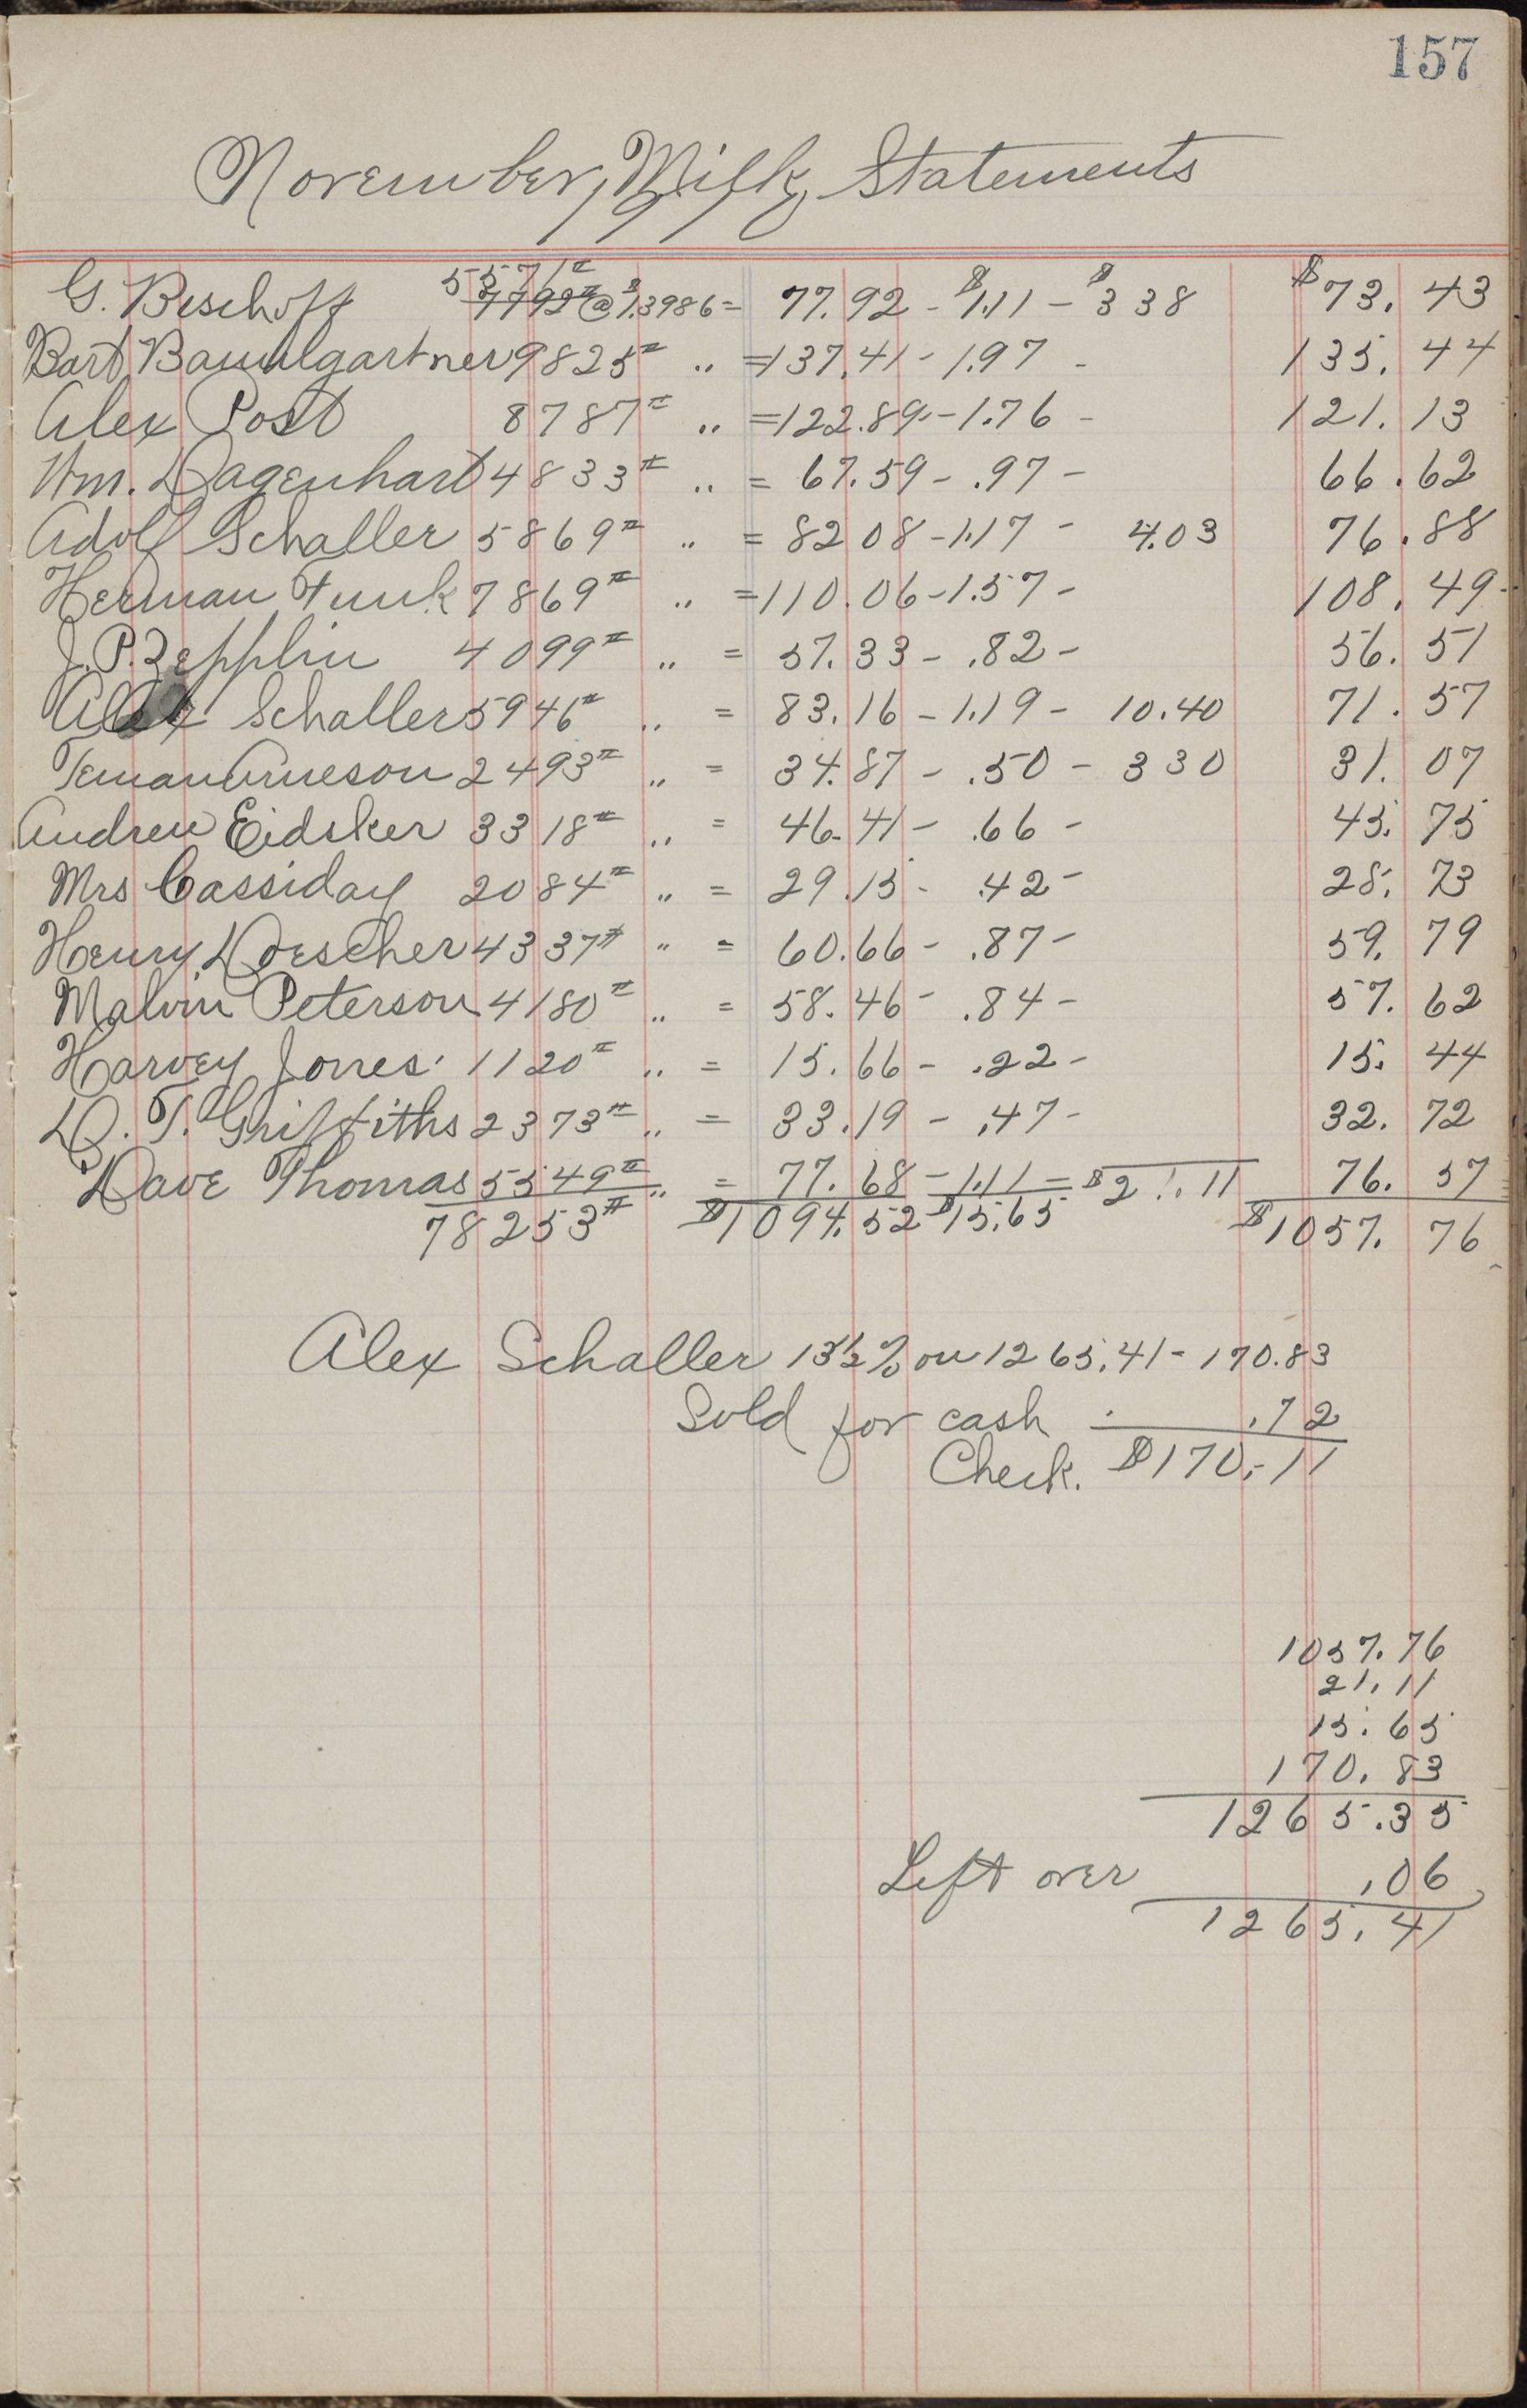 157
November, Milk, Statements
G. Beschoff 5571# 7792# @ $1.3986 = 77.92 - $1.11 - $3 38 $73. 43
Bart Baumlgartner 9825# .. = 137.41 - 1.97 - 135. 44
Alex Post 8787# .. = 122.89 - 1.76 - 121. 13
Wm. Dagenhart 4833# .. = 67.59 - .97 - 66. 62
Adolf Schaller 5869# .. = 82 08 - 1.17 - 4.03 76. 88
Herman Funk 7869# .. = 110.06 - 1.57 - 108. 49
J.P. Zepplin 4099# .. = 57.33 - .82 - 56. 51
Alex Schaller 5946# .. = 83.16 - 1.19 - 10.40 71. 57
Teman Arneson 2493# .. = 34.87 - .50 - 3 30 31. 07
Andrew Eidsker 3318# .. = 46.41 - .66 - 45. 75
Mrs Cassiday 2084# .. = 29.15 - .42 - 28. 73
Henry Doescher 4337# .. = 60.66 - .87 - 59. 79
Malvin Peterson 4180# .. = 58.46 - .84 - 57. 62
Harvey Jones. 1120# .. = 15.66 - .22 - 15. 44
D. T. Griffiths 2373# .. = 33.19 - .47 - 32. 72
Dave Thomas 5549# .. = 77.68 - 1.11 = $21.11 76. 57
78253# $1094.52 $15.65 $1057. 76
Alex Schaller 13½% on 1265.41 - 170.83
Sold for cash .72
Check. $170.11
1057.76
21.11
15.65
170.83
1265.35
Left over .06
1265.41